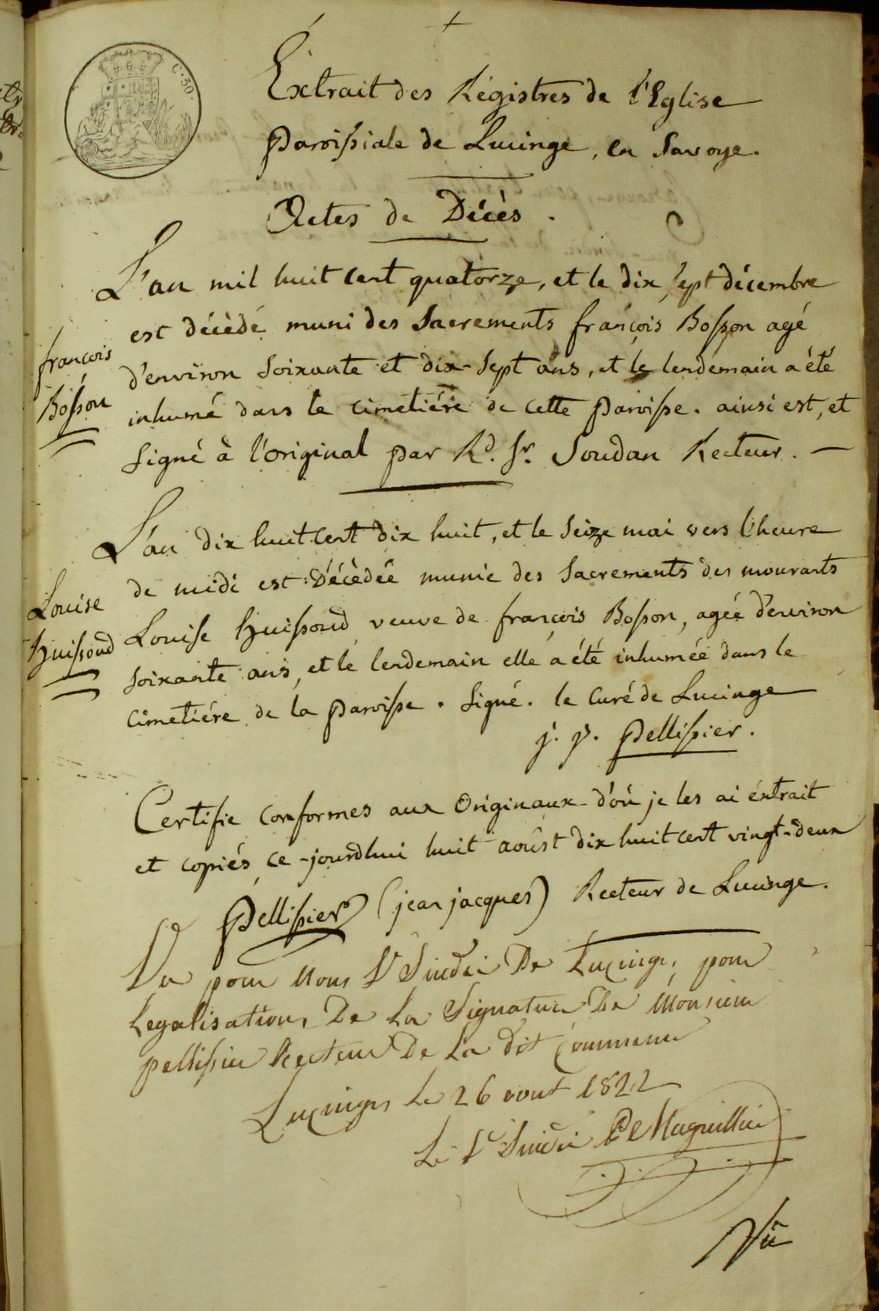 C. 30.
Extrait des Régistres de l'Eglise
Paroissiale de Lucinge, en Savoye.
Actes de Décès.
L'an mil huit cent quatorze, et le dix sept décembre
est décèdé muni des Sacrements françois Bosson agé
d'environ soixante et dix-sept ans, et le lendemain a été
inhumé dans le cimetiére de cette paroisse. ainsi est, et
signé à l'original par Rd. Sr. Soudan Recteur. —
françois
Bosson
L'an dix huit cent dix huit, et le seize mai vers l'heure
de midi est Décèdée munie des Sacrements des mourants
Louise Huissoud veuve de françois Bosson, agée d'environ
soixante ans, et le lendemain elle a été inhumée dans le
cimetiére de la paroisse. Signé. le Curé de Lucinge
j. j. Pellissier.
Louise
Huissoud
Certifie conformes aux Originaux d'où je les ai éxtrait
et copiés, ce-jourdhui huit aoûst dix huit cent vingt-deux
Pellissier (jean jacques) Recteur de Lucinge.
Vu pour Nous Sindic De Lucinge, pour
Legalisation, De La Signature De Monsieur
pellissier Recteur De La dit Commune
Lucinges Le 26 aout 1822
Le Sindic
Vu